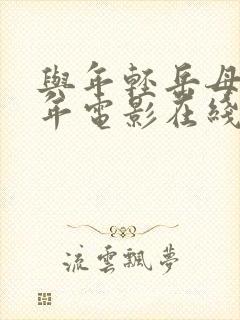 與年輕岳母
年電影在綫
流雲飄夢